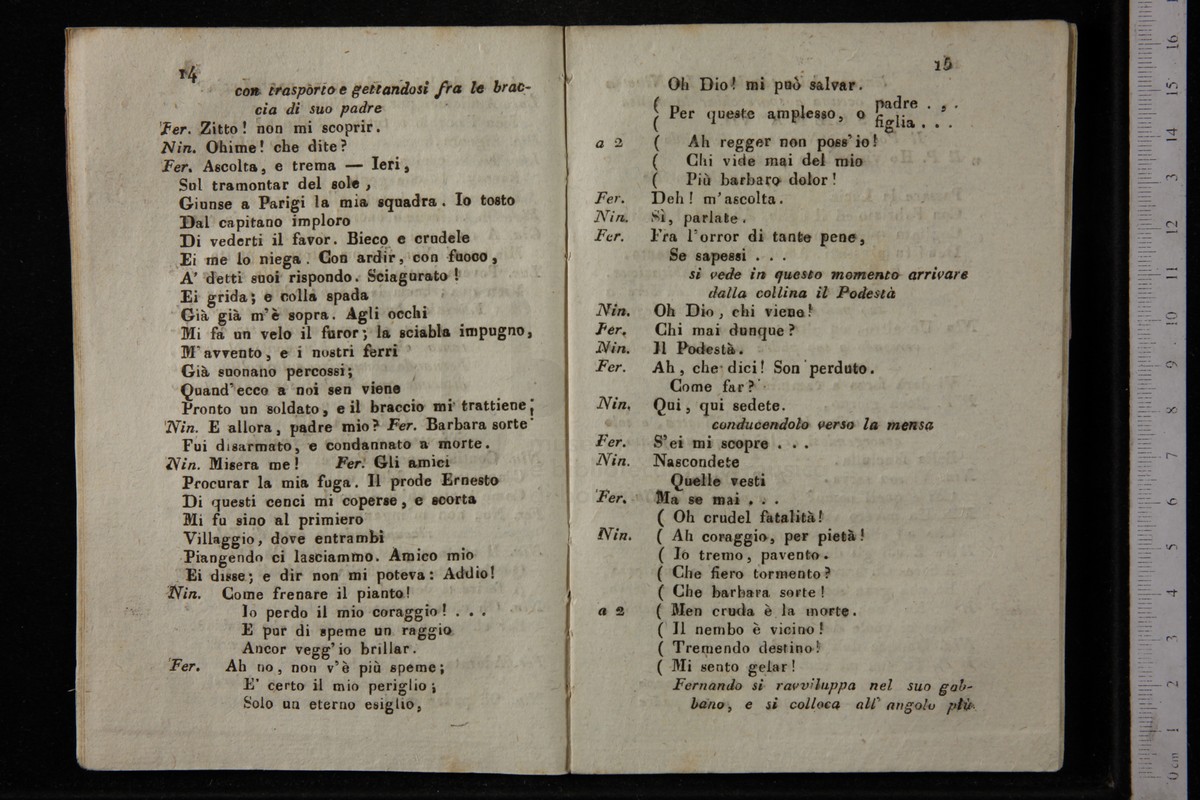 14
con trasporto e gettandosi fra le brac-
cia di suo padre
Fer. Zitto! non mi scoprir.
Nin. Ohime! che dite?
Fer. Ascolta, e trema — Ieri,
Sul tramontar del sole,
Giunse a Parigi la mia squadra. Io tosto
Dal capitano imploro
Di vederti il favor. Bieco e crudele
Ei me lo niega. Con ardir, con fuoco,
A' detti suoi rispondo. Sciagurato!
Ei grida; e colla spada
Già già m'è sopra. Agli occhi
Mi fa un velo il furor; la sciabla impugno,
M'avvento, e i nostri ferri
Già suonano percossi;
Quand'ecco a noi sen viene
Pronto un soldato, e il braccio mi trattiene;
Nin. E allora, padre mio? Fer. Barbara sorte
Fui disarmato, e condannato a morte.
Nin. Misera me! Fer. Gli amici
Procurar la mia fuga. Il prode Ernesto
Di questi cenci mi coperse, e scorta
Mi fu sino al primiero
Villaggio, dove entrambi
Piangendo ci lasciammo. Amico mio
Ei disse; e dir non mi poteva: Addio!
Nin. Come frenare il pianto!
Io perdo il mio coraggio! . . .
E pur di speme un raggio
Ancor vegg'io brillar.
Fer. Ah no, non v'è più speme;
E' certo il mio periglio;
Solo un eterno esiglio,
15
Oh Dio! mi può salvar.
( Per questo amplesso, o padre . , .
( figlia . . .
a 2 ( Ah regger non poss'io!
( Chi vide mai del mio
( Più barbaro dolor!
Fer. Deh! m'ascolta.
Nin. Sì, parlate.
Fer. Fra l'orror di tante pene,
Se sapessi . . .
si vede in questo momento arrivare
dalla collina il Podestà
Nin. Oh Dio, chi viene!
Fer. Chi mai dunque?
Nin. Il Podestà.
Fer. Ah, che dici! Son perduto.
Come far?
Nin. Qui, qui sedete.
conducendolo verso la mensa
Fer. S'ei mi scopre . . .
Nin. Nascondete
Quelle vesti
Fer. Ma se mai . . .
( Oh crudel fatalità!
Nin. ( Ah coraggio, per pietà!
( Io tremo, pavento.
( Che fiero tormento?
( Che barbara sorte!
a 2 ( Men cruda è la morte.
( Il nembo è vicino!
( Tremendo destino!
( Mi sento gelar!
Fernando si ravviluppa nel suo gab-
bano, e si colloca all' angolo più